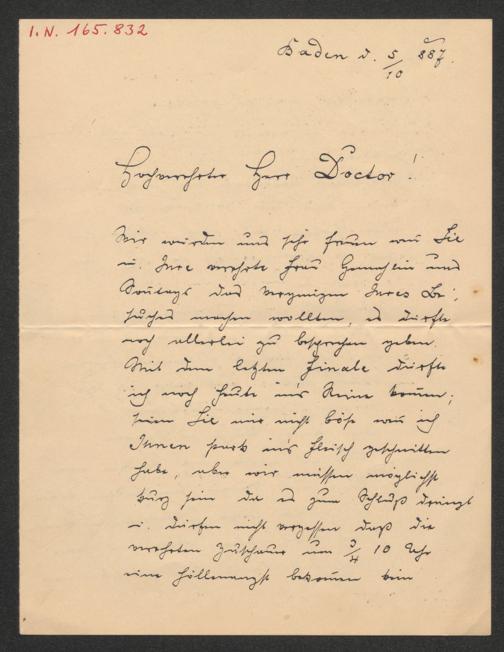 I.N. 165.832
Baden d. 5/10 887.
Hochverehrter Herr Doctor!
Wir würden uns sehr freuen wenn Sie
u. Ihre verehrte Frau Gemahlin uns
Sontags das Vergnügen Ihres Be-
suches machen wollten, es dürfte
noch allerlei zu besprechen geben.
Mit dem letzten Finale dürfte
ich noch heute in's Reine kommen;
seien Sie mir nicht böse wenn ich
Ihnen stark in's Fleisch geschnitten
habe, aber wir müssen möglichst
kurz sein da es zum Schluß drängt
u. dürfen nicht vergessen daß die
verehrten Zuschauer um 3/4 10 Uhr
eine Höllenangst bekommen beim